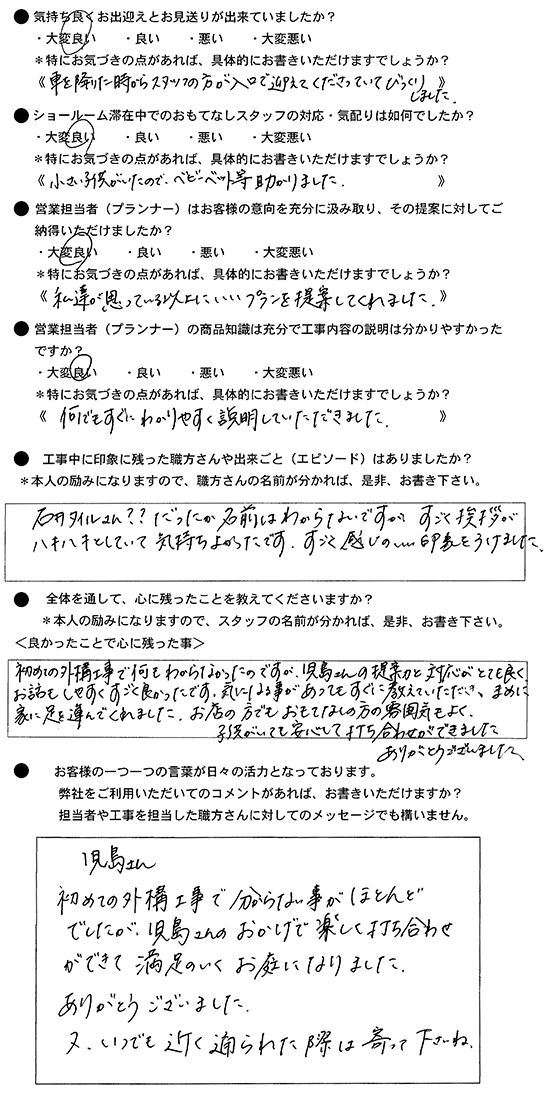 ● 気持ち良くお出迎えとお見送りが出来ていましたか？
・大変良い ・良い ・悪い ・大変悪い
＊特にお気づきの点があれば、具体的にお書きいただけますでしょうか？
《車を降りた時からスタッフの方が入口で迎えてくださっていてびっくり》
しました.
● ショールーム滞在中でのおもてなしスタッフの対応・気配りは如何でしたか？
・大変良い ・良い ・悪い ・大変悪い
＊特にお気づきの点があれば、具体的にお書きいただけますでしょうか？
《小さい子供がいたので、ベビーベット等助かりました. 》
● 営業担当者（プランナー）はお客様の意向を充分に汲み取り、その提案に対してご
納得いただけましたか？
・大変良い ・良い ・悪い ・大変悪い
＊特にお気づきの点があれば、具体的にお書きいただけますでしょうか？
《私達が思っている以上にいいプランを提案してくれました.》
● 営業担当者（プランナー）の商品知識は充分で工事内容の説明は分かりやすかった
ですか？
・大変良い ・良い ・悪い ・大変悪い
＊特にお気づきの点があれば、具体的にお書きいただけますでしょうか？
《何でもすぐにわかりやすく説明していただきました. 》
● 工事中に印象に残った職方さんや出来ごと（エピソード）はありましたか？
＊本人の励みになりますので、職方さんの名前が分かれば、是非、お書き下さい。
石井タイルさん？？だったか名前はわからないですが すごく挨拶が
ハキハキとしていて気持ちよかったです. すごく感じのいい印象をうけました.
● 全体を通して、心に残ったことを教えてくださいますか？
＊本人の励みになりますので、スタッフの名前が分かれば、是非、お書き下さい。
＜良かったことで心に残った事＞
初めての外構工事で何もわからなかったのですが、児島さんの提案力と対応がとても良く
お話もしやすくすごく良かったです. 気になる事があってもすぐに教えていただき、まめに
家に足を運んでくれました. お店の方でもおもてなしの方の雰囲気もよく、
子供がいても安心して打ち合わせができました
ありがとうございました.
● お客様の一つ一つの言葉が日々の活力となっております。
弊社をご利用いただいてのコメントがあれば、お書きいただけますか？
担当者や工事を担当した職方さんに対してのメッセージでも構いません。
児島さん
初めての外構工事で分からない事がほとんど
でしたが、児島さんのおかげで楽しく打ち合わせ
ができて満足のいくお庭になりました.
ありがとうございました.
又、いつでも近く通られた際は寄って下さいね.